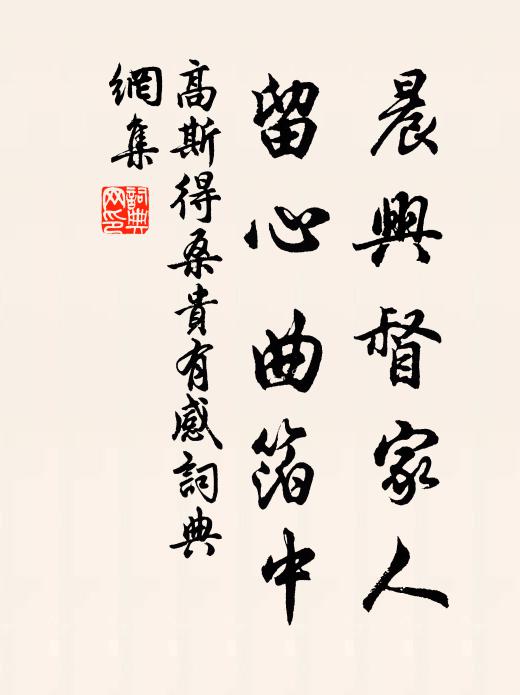 晨興督家人
留心曲箔中
高斯得桑貴有感詞典
網集
詞典網印